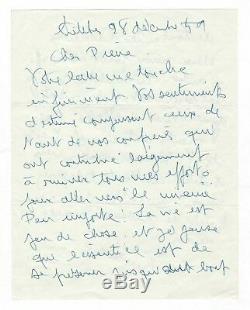 28 décembre 59
Cher Pierre
Votre lettre me touche
infiniment. Vos sentiments
d'estime compensent ceux de
tant de nos confrères qui
ont contribué
à ruiner tous mes efforts
pour aller vers le mieux
Peu importe! La vie est
peu de chose et je pense
que l'essentiel est de
se préserver jusqu'au bout